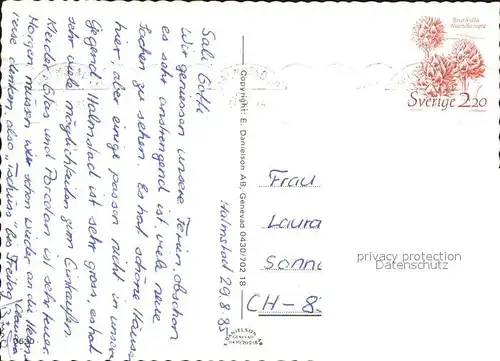 Sali Gotti
Wir geniessen unsere Ferien, obschon
es sehr anstrengend ist, viele neue
Sachen zu sehen. Es hat schöne Häuser
hier, aber einige passen nicht in unsere
Gegend. Halmstad ist sehr gross, es hat
sehr viele Möglichkeiten zum Einkaufen.
Kleider, Glas und Porzelan ist sehr teuer.
Morgen müssen wir schon wieder an die Heim-
reise denken, also "Tschüss" bis Freitag
Claudia
3630
Copyright: E. Danielson AB, Genevad 0430/702 18
DANIELSON
GENEVAD
Halmstad 29.8.85
Brunkulla
Nigritella nigra
Sverige 220
Frau
Laura
Sonn
CH-8
privacy protection
Datenschutz